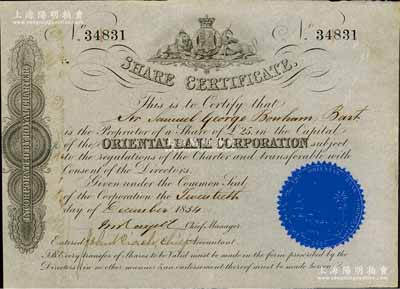 上海陽明拍賣
No. 34831 No. 34831
SHARE CERTIFICATE.
INCORPORATED BY ROYAL CHARTER
This is to Certify that
Sir Samuel George Bonham Bart
is the Proprietor of a Share of £25 in the Capital
of the ORIENTAL BANK CORPORATION subject
to the regulations of the Charter and transferable with
Consent of the Directors.
Given under the Common Seal
of the Corporation the Twentieth
day of December 1854
Chief Manager.
Entered Chief Accountant.
N.B. Every transfer of Shares to be Valid must be made in the form prescribed by the
Directors in no other manner and endorsement thereof must be made hereon